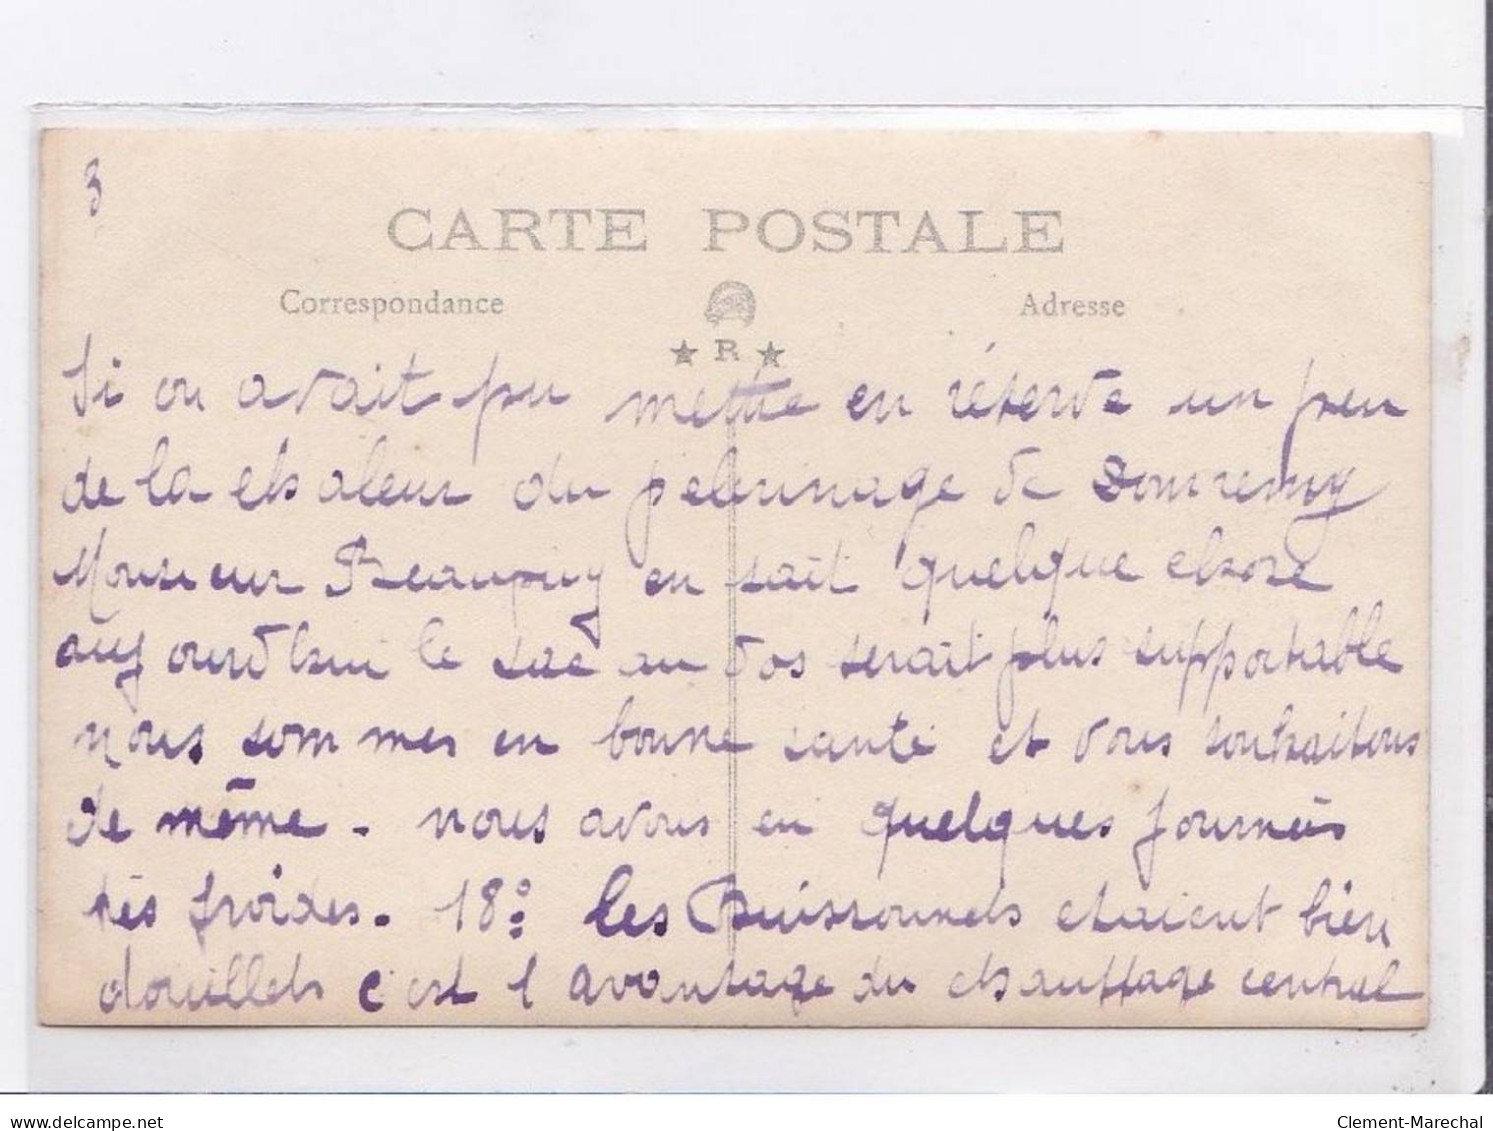 3
CARTE POSTALE
Correspondance
Adresse
R
Si on avait pu mettre en réserve un peu
de la chaleur du pelerinage de Domremy
Monsieur Beaupuy en sait quelque chose
aujourd'hui le sac au dos serait plus supportable
nous sommes en bonne santé et vous souhaitons
de même - nous avons eu quelques journées
très froides - 18° les Buissonnets etaient bien
douillets c'est l'avantage du chauffage central
www.delcampe.net
Clement-Marechal